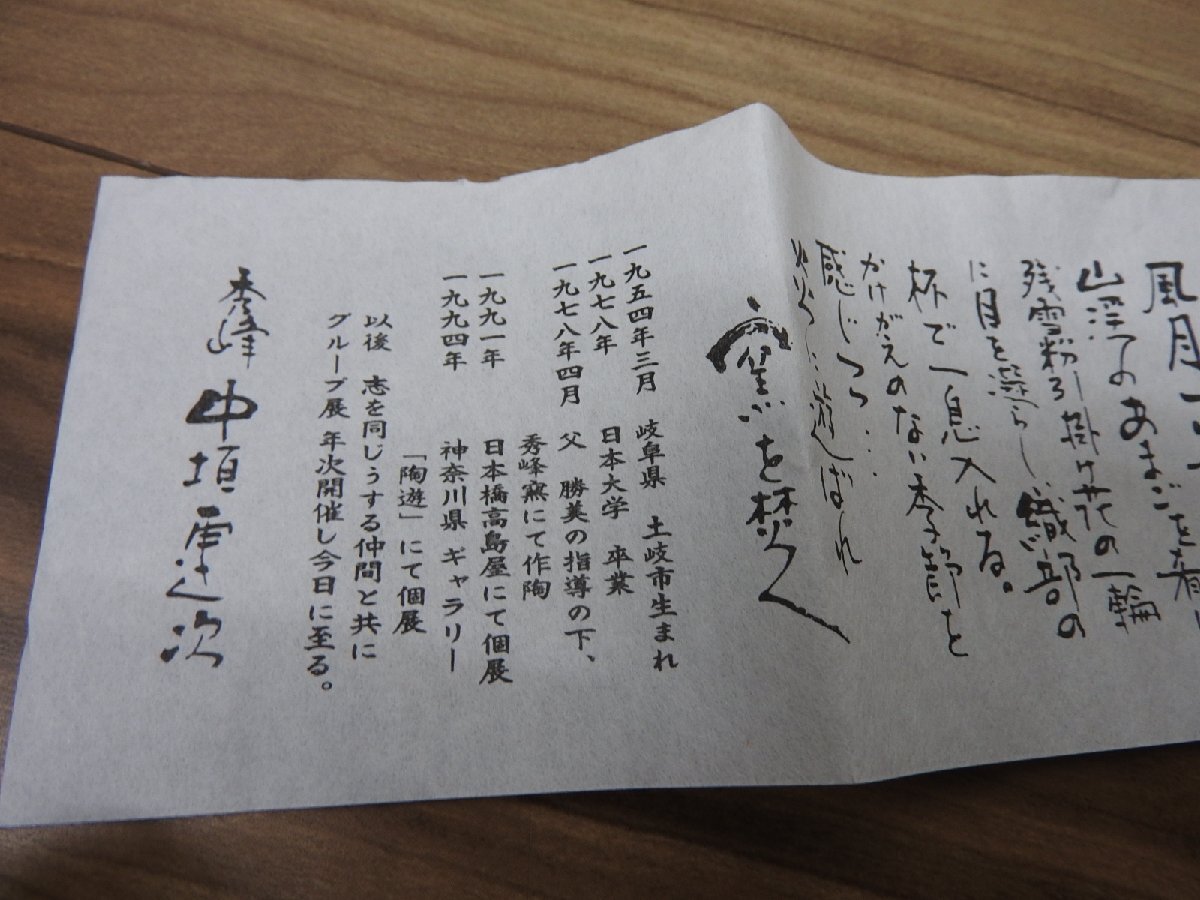 風月
山渓のあまごを肴に
残雪粉引掛け花の一輪
に目を凝らし織部の
杯で一息入れる。
かけがえのない季節を
感じつつ…
炎に遊ばれ
窯を焚く
一九五四年三月 岐阜県 土岐市生まれ
一九七八年 日本大学 卒業
一九七八年四月 父 勝美の指導の下、
秀峰窯にて作陶
一九九一年 日本橋高島屋にて個展
一九九四年 神奈川県 ギャラリー
「陶遊」にて個展
以後 志を同じうする仲間と共に
グループ展 年次開催し今日に至る。
秀峰 中垣連次